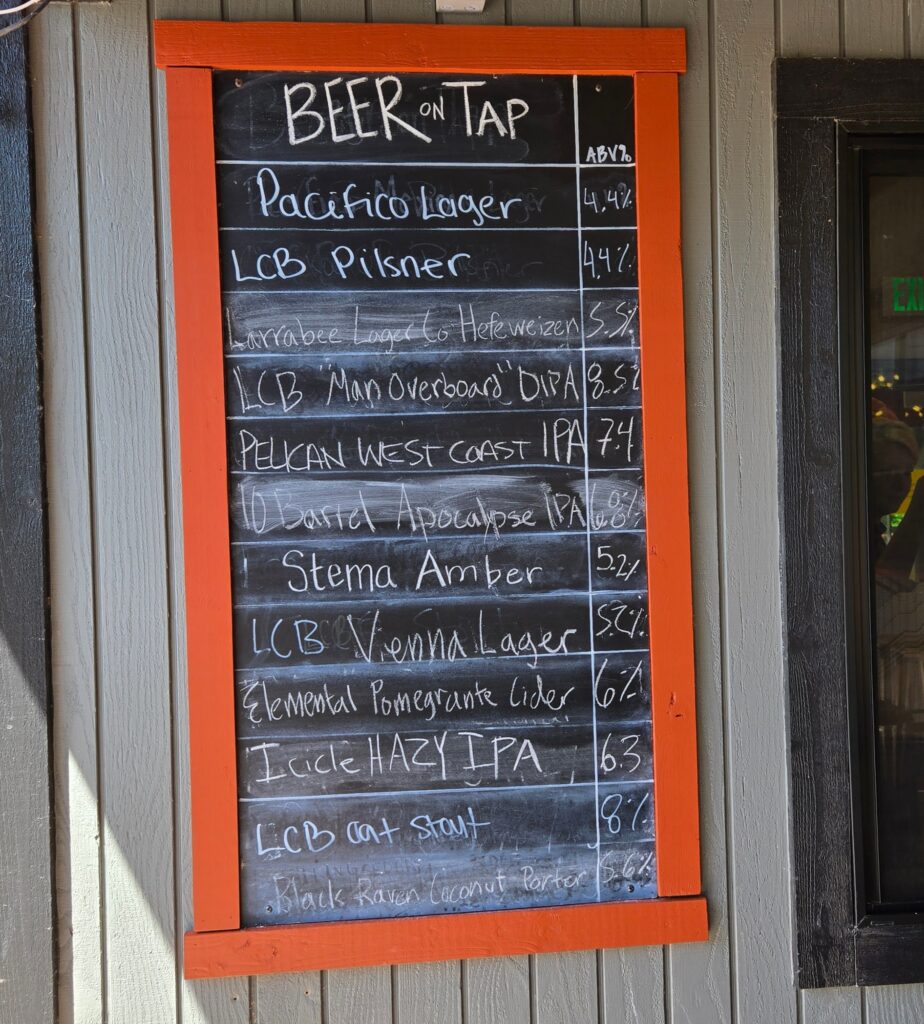 BEER ON TAP
ABV%
Pacifico Lager 4.4%
LCB Pilsner 4.4%
Larrabee Lager Co Hefeweizen 5.5%
LCB "Man Overboard" DIPA 8.5%
PELICAN WEST COAST IPA 7.4
10 Barrel Apocalypse IPA 6.8%
Stema Amber 5.2%
LCB Vienna Lager 5.2%
Elemental Pomegrante Cider 6%
Icicle HAZY IPA 6.3
LCB oat stout 8%
Black Raven Coconut Porter 5.6%